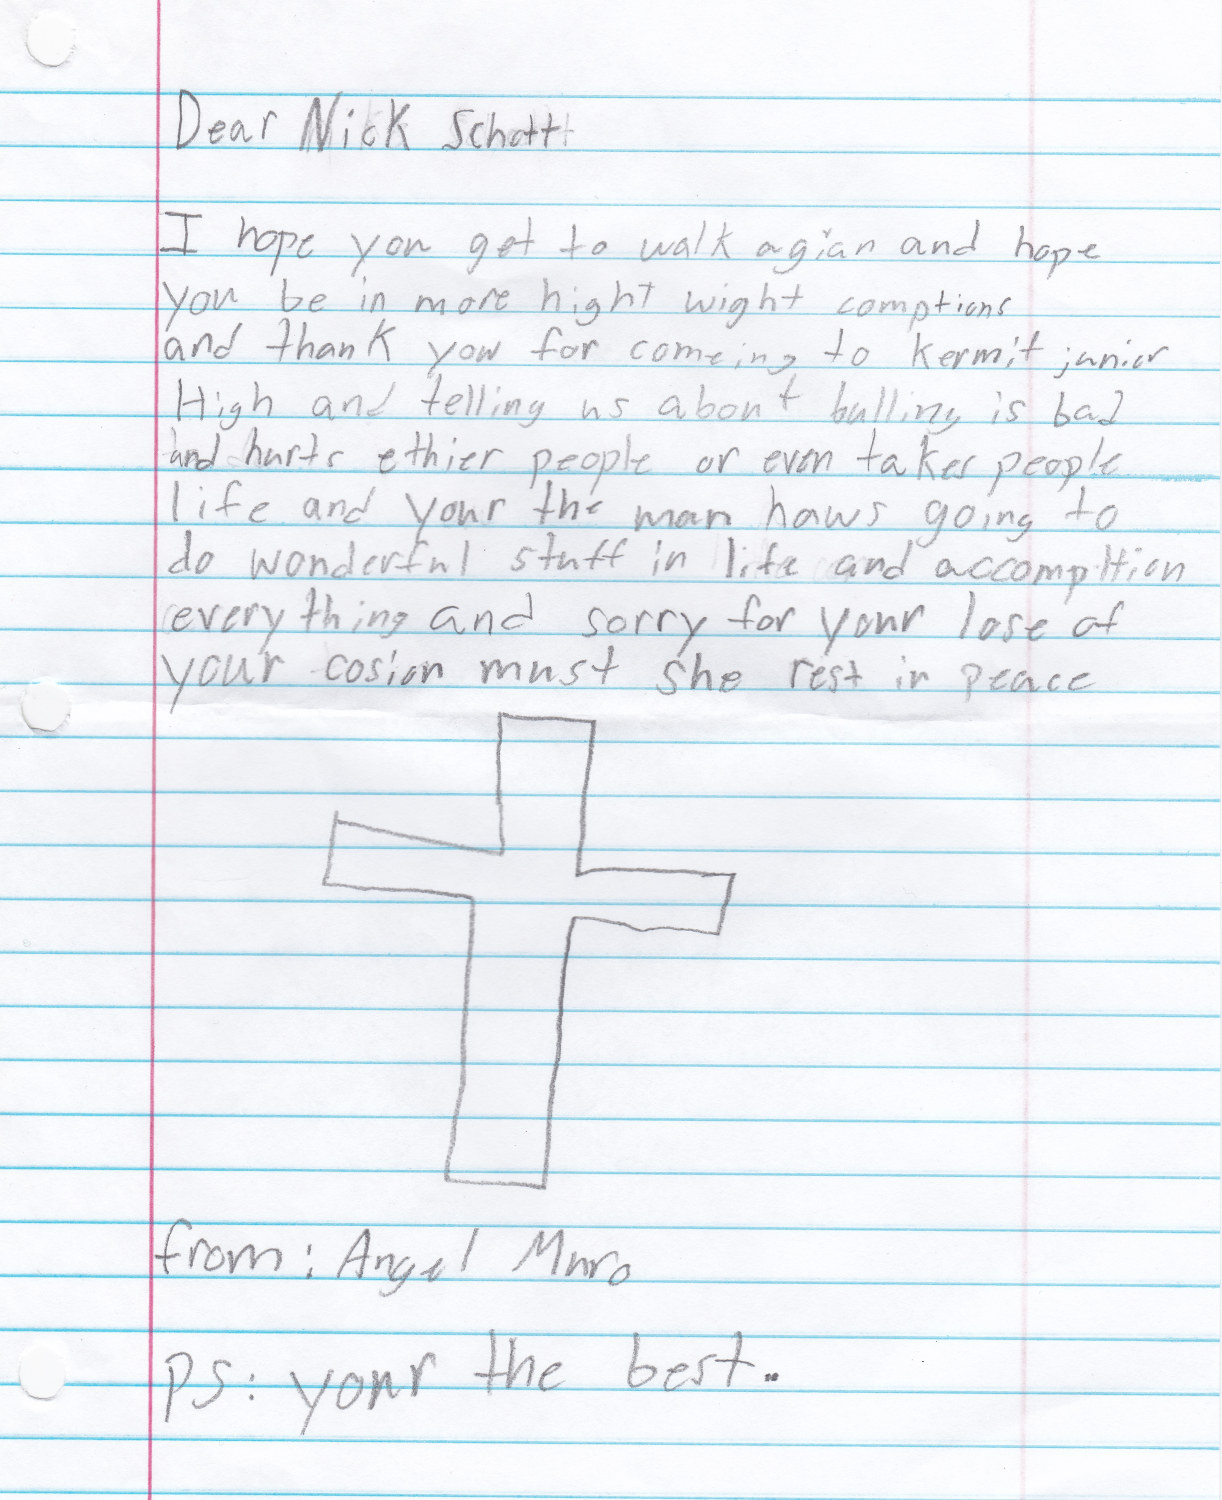 Dear Nick Schott
I hope you get to walk agian and hope
you be in more hight wight comptions
and thank you for comeing to kermit junior
High and telling us about bulling is bad
and hurts ethier people or even takes people
life and your the man haws going to
do wonderful stuff in life and accompltion
everything and sorry for your lose of
your cosion must she rest in peace
from: Angel Muro
ps: your the best..